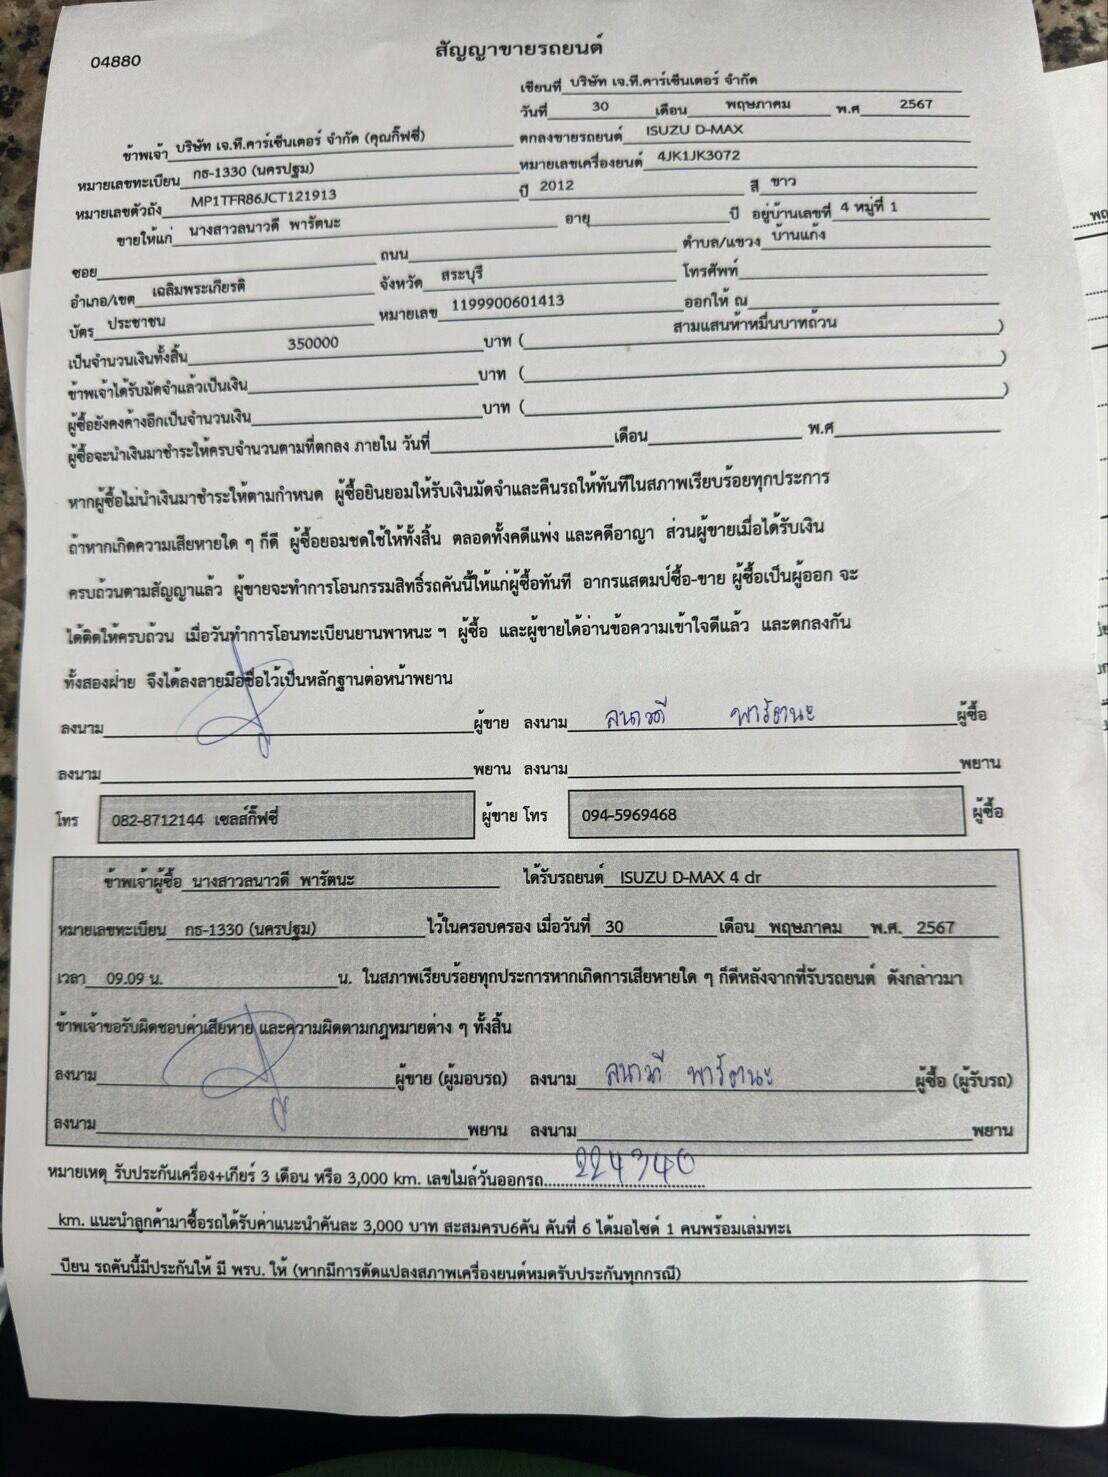 04880
สัญญาขายรถยนต์
เขียนที่ บริษัท เจ.ที.คาร์เซ็นเตอร์ จำกัด
วันที่ 30 เดือน พฤษภาคม พ.ศ 2567
ข้าพเจ้า บริษัท เจ.ที.คาร์เซ็นเตอร์ จำกัด (คุณกิ๊ฟซี่) ตกลงขายรถยนต์ ISUZU D-MAX
หมายเลขทะเบียน กธ-1330 (นครปฐม) หมายเลขเครื่องยนต์ 4JK1JK3072
หมายเลขตัวถัง MP1TFR86JCT121913 ปี 2012 สี ขาว
ขายให้แก่ นางสาวลนาวดี พารัตนะ อายุ ปี อยู่บ้านเลขที่ 4 หมู่ที่ 1
ซอย ถนน ตำบล/แขวง บ้านแก้ง
อำเภอ/เขต เฉลิมพระเกียรติ จังหวัด สระบุรี โทรศัพท์
บัตร ประชาชน หมายเลข 1199900601413 ออกให้ ณ
เป็นจำนวนเงินทั้งสิ้น 350000 บาท ( สามแสนห้าหมื่นบาทถ้วน )
ข้าพเจ้าได้รับมัดจำแล้วเป็นเงิน บาท ( )
ผู้ซื้อยังคงค้างอีกเป็นจำนวนเงิน บาท ( )
ผู้ซื้อจะนำเงินมาชำระให้ครบจำนวนตามที่ตกลง ภายใน วันที่ เดือน พ.ศ
หากผู้ซื้อไม่นำเงินมาชำระให้ตามกำหนด ผู้ซื้อยินยอมให้รับเงินมัดจำและคืนรถให้ทันทีในสภาพเรียบร้อยทุกประการ
ถ้าหากเกิดความเสียหายใด ๆ ก็ดี ผู้ซื้อยอมชดใช้ให้ทั้งสิ้น ตลอดทั้งคดีแพ่ง และคดีอาญา ส่วนผู้ขายเมื่อได้รับเงิน
ครบถ้วนตามสัญญาแล้ว ผู้ขายจะทำการโอนกรรมสิทธิ์รถคันนี้ให้แก่ผู้ซื้อทันที อากรแสตมป์ซื้อ-ขาย ผู้ซื้อเป็นผู้ออก จะ
ได้ติดให้ครบถ้วน เมื่อวันทำการโอนทะเบียนยานพาหนะ ฯ ผู้ซื้อ และผู้ขายได้อ่านข้อความเข้าใจดีแล้ว และตกลงกัน
ทั้งสองฝ่าย จึงได้ลงลายมือชื่อไว้เป็นหลักฐานต่อหน้าพยาน
ลงนาม ผู้ขาย ลงนาม ลนาวดี พารัตนะ ผู้ซื้อ
ลงนาม พยาน ลงนาม พยาน
โทร 082-8712144 เซลส์กิ๊ฟซี่ ผู้ขาย โทร 094-5969468 ผู้ซื้อ
ข้าพเจ้าผู้ซื้อ นางสาวลนาวดี พารัตนะ ได้รับรถยนต์ ISUZU D-MAX 4 dr
หมายเลขทะเบียน กธ-1330 (นครปฐม) ไว้ในครอบครอง เมื่อวันที่ 30 เดือน พฤษภาคม พ.ศ. 2567
เวลา 09.09 น. น. ในสภาพเรียบร้อยทุกประการหากเกิดการเสียหายใด ๆ ก็ดีหลังจากที่รับรถยนต์ ดังกล่าวมา
ข้าพเจ้าขอรับผิดชอบค่าเสียหาย และความผิดตามกฎหมายต่าง ๆ ทั้งสิ้น
ลงนาม ผู้ขาย (ผู้มอบรถ) ลงนาม ลนาวดี พารัตนะ ผู้ซื้อ (ผู้รับรถ)
ลงนาม พยาน ลงนาม พยาน
หมายเหตุ รับประกันเครื่อง+เกียร์ 3 เดือน หรือ 3,000 km. เลขไมล์วันออกรถ 224340
km. แนะนำลูกค้ามาซื้อรถได้รับค่าแนะนำคันละ 3,000 บาท สะสมครบ6คัน คันที่ 6 ได้มอไซด์ 1 คนพร้อมเล่มทะเ
บียน รถคันนี้มีประกันให้ มี พรบ. ให้ (หากมีการดัดแปลงสภาพเครื่องยนต์หมดรับประกันทุกกรณี)